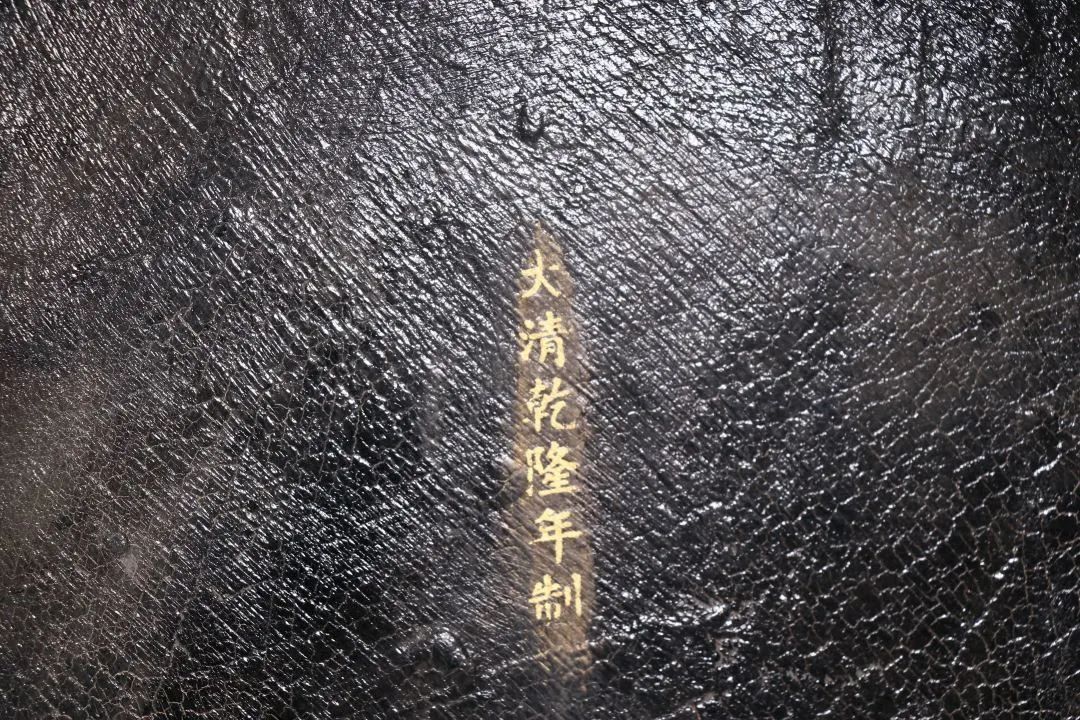 大清乾隆年制